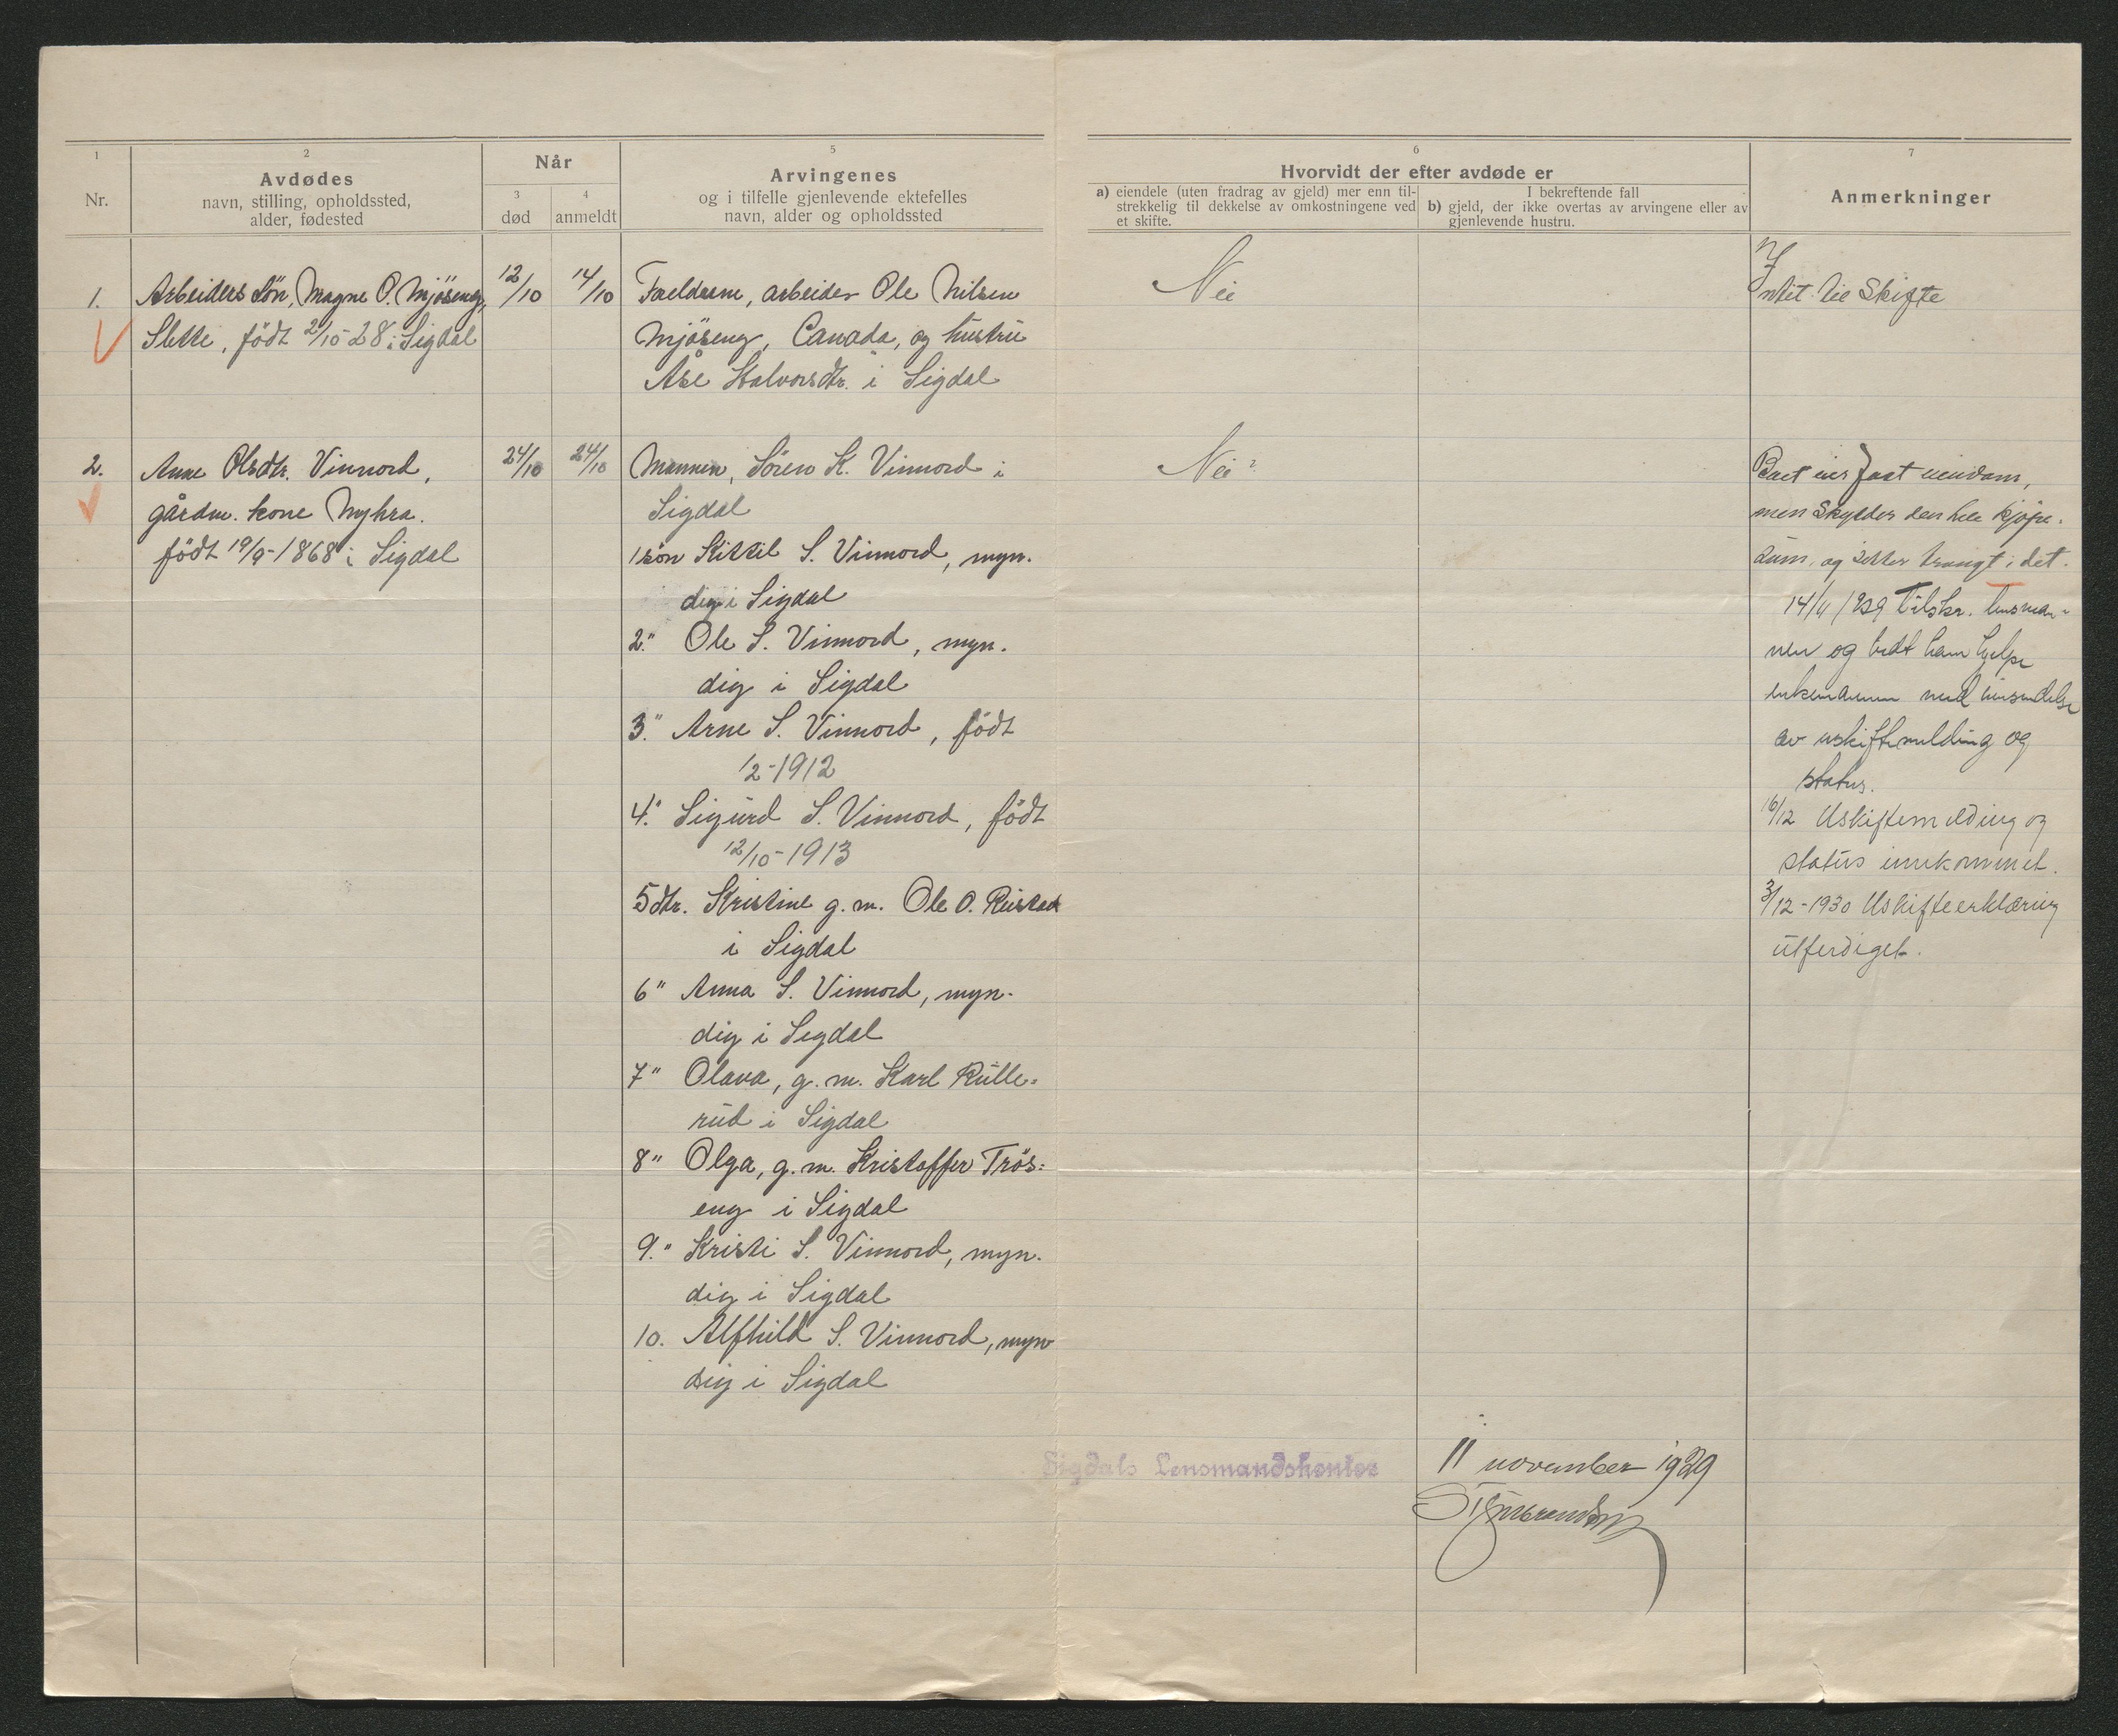 1
Nr.
2
Avdødes
navn, stilling, opholdssted,
alder, fødested
Når
3
død
4
anmeldt
5
Arvingenes
og i tilfelle gjenlevende ektefelles
navn, alder og opholdssted
6
Hvorvidt der efter avdøde er
a) eiendele (uten fradrag av gjeld) mer enn til-
strekkelig til dekkelse av omkostningene ved
et skifte.
I bekreftende fall
b) gjeld, der ikke overtas av arvingene eller av
gjenlevende hustru.
7
Anmerkninger
1.
Arbeiders sön, Magne O. Mjöseng,
Slette, födt 2/10-28 i Sigdal
12/10
14/10
Foreldrene, arbeider Ole Nilsen
Mjöseng, Canada, og hustru
Åse Halvorsdtr. i Sigdal
Nei
Intet til Skifte
2.
Anne Olsdtr. Vinnord,
gårdm. kone Nyhra.
födt 19/9-1868 i Sigdal
24/10
24/10
Mannen, Sören K. Vinnord i
Sigdal
1 sön Kittil S. Vinnord, myn-
dig i Sigdal
2." Ole S. Vinnord, myn-
dig i Sigdal
3." Arne S. Vinnord, födt
1/2-1912
4." Sigurd S. Vinnord, födt
12/10-1913
5 dtr. Kristine g. m. Ole O. Rustad
i Sigdal
6" Anna S. Vinnord, myn-
dig i Sigdal
7" Olava, g. m. Karl Rulle=
rud i Sigdal
8" Olga, g. m. Kristoffer Trös=
eng i Sigdal
9." Kristi S. Vinnord, myn-
dig i Sigdal
10. Alfhild S. Vinnord, myn-
dig i Sigdal
Nei
Boet eier fast eiendom,
men skylder den hele kjøpe-
sum, og sitter trangt i det.
14/11 1929 Tilskr. lensman-
nen og bedt ham hjelpe
enkemannen med innsendelse
av uskiftemelding og
status.
16/12 Uskiftemelding og
status innkommet.
3/12-1930 Uskifteerklæring
utferdiget.
Sigdals Lensmandskontor
11 november 1929